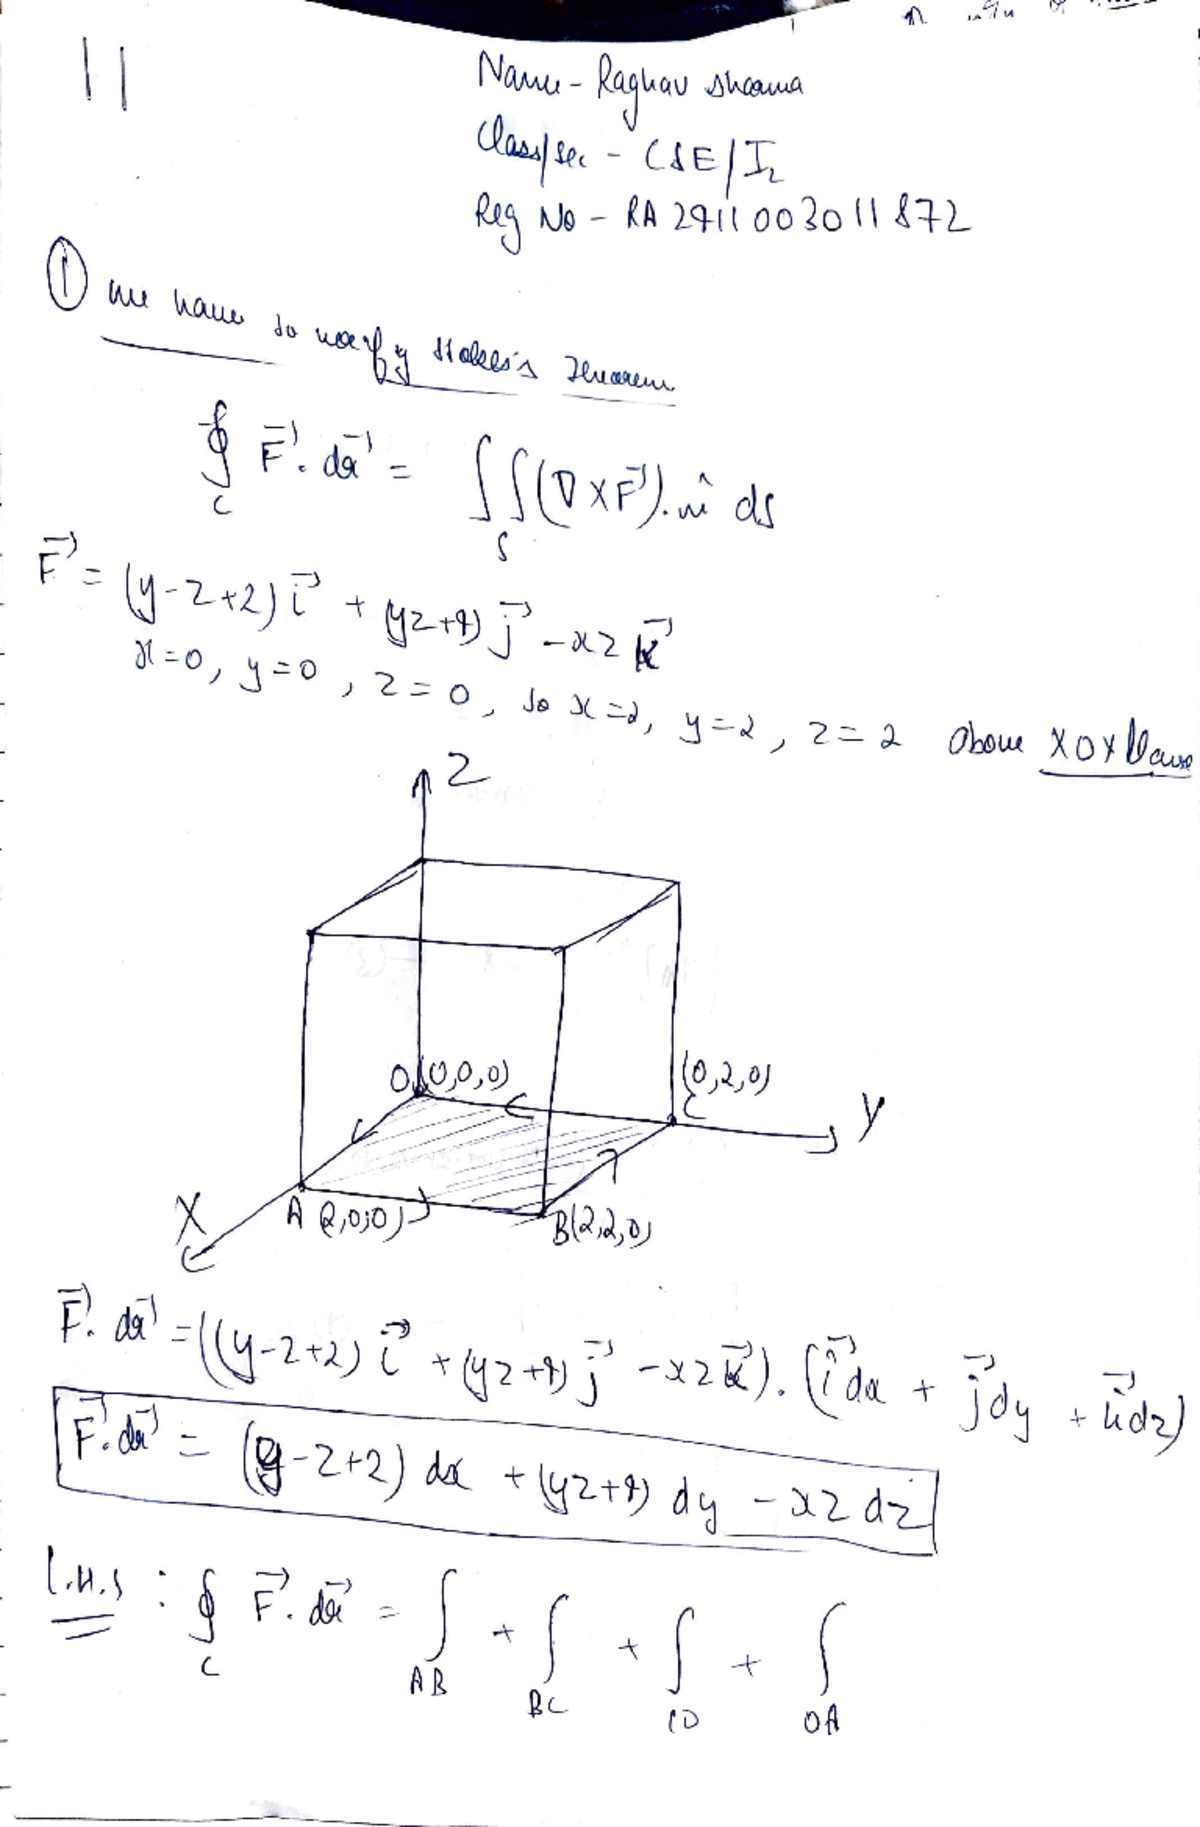 11
Name - Raghav Sharma
Class/sec - CSE/I2
Reg No - RA 2911003011872
① we have to verify Stokes's Theorem
∮C F⃗. dr⃗ = ∬S (∇×F⃗).n̂ ds
F⃗ = (y-z+2) i⃗ + (yz+4) j⃗ - xz k⃗
x=0, y=0, z=0, to x=2, y=2, z=2 above XOY Plane
Z
O (0,0,0)
(0,2,0)
C
Y
X
A (2,0,0)
B(2,2,0)
F⃗. dr⃗ = ((y-z+2) i⃗ + (yz+4) j⃗ - xz k⃗). (i⃗dx + j⃗dy + k⃗dz)
F⃗.dr⃗ = (y-z+2) dx + (yz+4) dy - xz dz
L.H.S : ∮C F⃗. dr⃗ = ∫AB + ∫BC + ∫CO + ∫OA